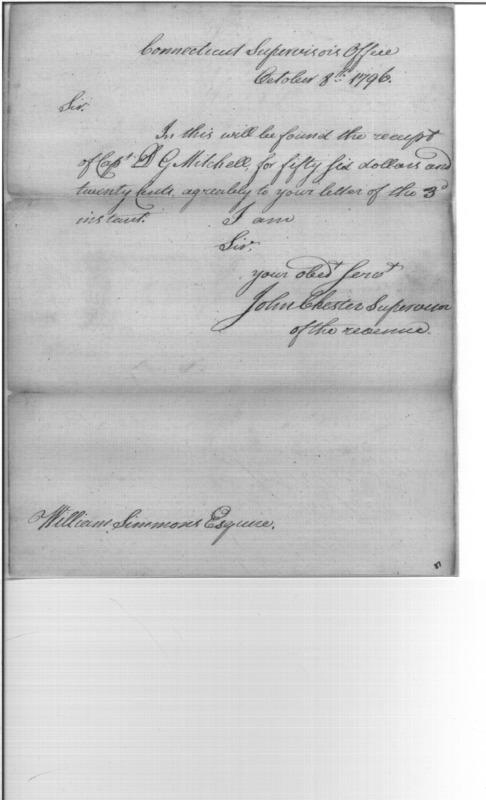 Connecticut Supervisors Office
October 8th 1796.
Sir.
In this will be found the receipt
of Capt D G Mitchell, for fifty six dollars and
twenty Cents, agreeably to your letter of the 3d
instant. I am
Sir.
your obedt Servt
John Chester Supervisor
of the revenue.
William Simmons Esquire.